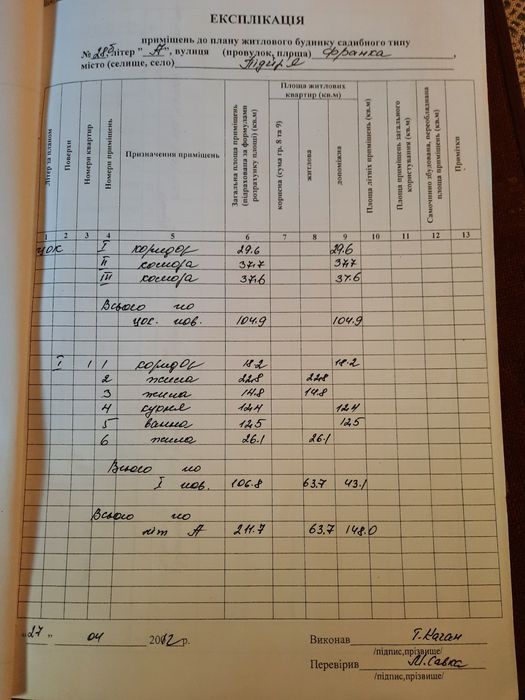 ЕКСПЛІКАЦІЯ
приміщень до плану житлового будинку садибного типу
№ 28б літер " А ", вулиця (провулок, площа) Франка,
місто (селище, село)
Літер за планом
Поверхи
Номери квартир
Номери приміщень
Призначення приміщень
Загальна площа приміщень (підрахована за формулами розрахунку площі) (кв.м)
Площа житлових квартир (кв.м)
корисна (сума гр. 8 та 9)
житлова
допоміжна
Площа літніх приміщень (кв.м)
Площа приміщень загального користування (кв.м)
Самочинно збудована, переобладнана площа приміщень (кв.м)
Примітки
1 2 3 4 5 6 7 8 9 10 11 12 13
цок I коридор 29.6 29.6
II комора 37.7 37.7
III комора 37.6 37.6
Всього по
цок. пов. 104.9 104.9
I 1 1 коридор 18.2 18.2
2 жила 22.8 22.8
3 жила 14.8 14.8
4 кухня 12.4 12.4
5 ванна 12.5 12.5
6 жила 26.1 26.1
Всього по
I пов. 106.8 63.7 43.1
Всього по
літ А 211.7 63.7 148.0
"27" 04 2012 р.
Виконав Т. Наган
/підпис,прізвище/
Перевірив М. Савка
/підпис,прізвище/